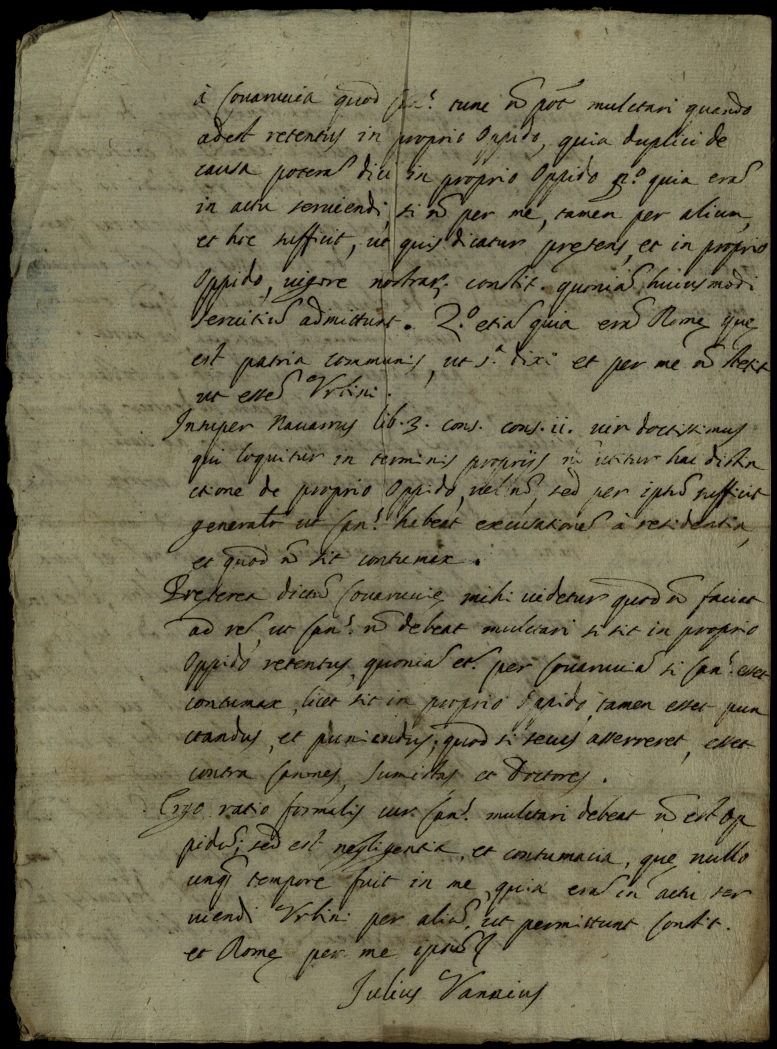 à Covaruvia quod Can.s tunc nō pōt mulctari quando
adest retentus in proprio Oppido, quia duplici de
causa poterā dici in proprio Oppido p.o quia erā
in actu serviendi, si nō per me, tamen per alium,
et hoc sufficit, ut quis dicatur pręsens, et in proprio
Oppido, vigore nostrar. constit. quoniā huiusmodi
servitiū admittunt. 2.o etiā quia erā Romę quę
est patria communis, ut s.a dixi et per me nō stetit
ut essē Urbini.
Insuper Navarrus lib. 3. cons. cons. ii. vir doctissimus
qui loquitur in terminis proprijs nō utitur hac distin
ctione de proprio Oppido, vel nō, sed per ipsū sufficit
ut Can.s habeat excusationē à residentia,
et quod nō sit contumax.
Pręterea dictū Covaruvię mihi videtur quod nō faciat
ad rē, ut Can.s nō debeat mulctari si sit in proprio
Oppido retentus, quoniā et. per Covaruviā si Can.s esset
contumax, licet sit in proprio Oppido, tamen esset pun
ctandus, et puniendus, quod si secus asserret, esset
contra Canones, Summistas et Doctores.
Ergo ratio formalis cur Can.s mulctari debeat nō est Op
pidū, sed est negligentia, et contumacia, quę nullo
unq̄ tempore fuit in me, quia erā in actu ser
viendi Urbini per aliū, ut permittunt Constit.
et Romę per me ipsū
Julius Vannius